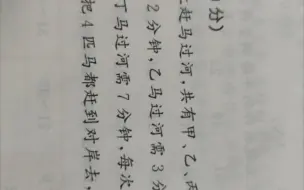 分)
赶马过河,共有甲、乙、丙
2分钟,乙马过河需3分
丁马过河需7分钟,每次
把4匹马都赶到对岸去,